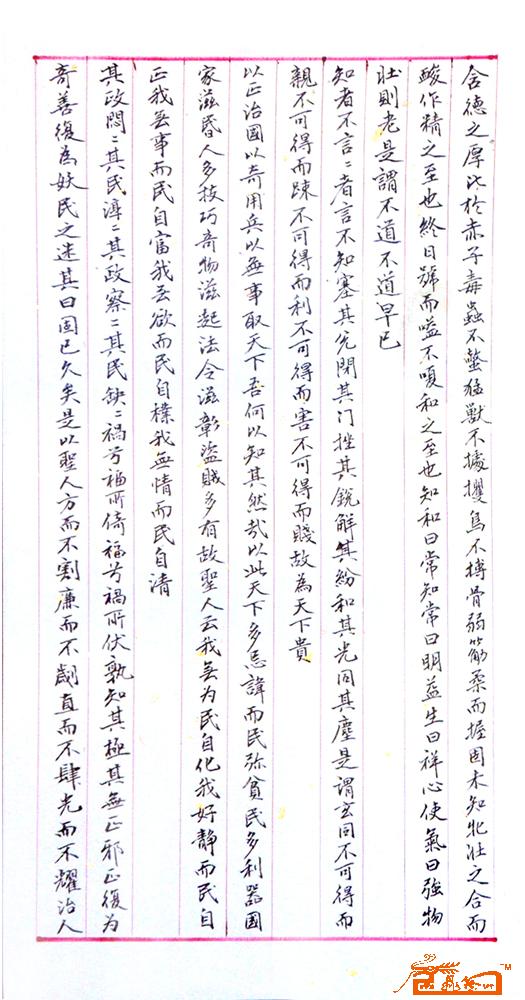 含德之厚比於赤子毒蟲不螫猛獸不據攫鳥不搏骨弱筋柔而握固未知牝壮之合而
酸作精之至也終日號而嗌不嗄和之至也知和曰常知常曰明益生曰祥心使氣曰強物
壯則老是謂不道不道早已
知者不言〻者言不知塞其兌閉其门挫其銳解其紛和其光同其塵是謂玄同不可得而
親不可得而踈不可得而利不可得而害不可得而賤故為天下貴
以正治國以奇用兵以無事取天下吾何以知其然哉以此天下多忌諱而民弥貧民多利器國
家滋昏人多技巧奇物滋起法令滋彰盜賊多有故聖人云我無为民自化我好静而民自
正我無事而民自富我無欲而民自樸我無情而民自清
其政悶〻其民淳〻其政察〻其民缺〻禍兮福所倚福兮禍所伏孰知其極其無正邪正復为
奇善復為妖民之迷其曰固已久矣是以聖人方而不割廉而不劌直而不肆光而不耀治人